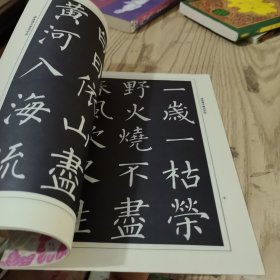 一歲一枯榮
野火燒不盡
風吹又生
白日依山盡
黄河入海流